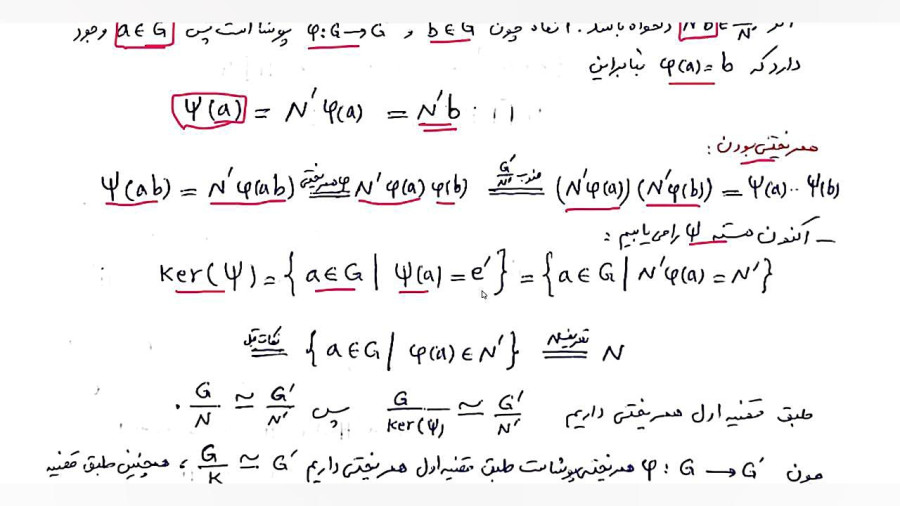 N'b ∈ G'/N' دلخواه باشد. آنگاه چون b∈G و φ: G → G پوشا است پس a∈G وجود
دارد که φ(a) = b بنابراین
Ψ(a) = N'φ(a) = N'b
همریختی بودن:
Ψ(ab) = N'φ(ab) =(φ همریختی) N'φ(a)φ(b) =(ضرب G'/N') (N'φ(a))(N'φ(b)) = Ψ(a)··Ψ(b)
– اکنون هسته Ψ را می‌یابیم:
Ker(Ψ) = {a∈G | Ψ(a) = e'} = {a∈G | N'φ(a) = N'}
=(نکات قبل) {a∈G | φ(a)∈N'} =(تعریف N) N
طبق قضیه اول همریختی داریم G/ker(Ψ) ≃ G'/N' پس G/N ≃ G'/N' .
چون φ: G → G' همریختی پوشاست طبق قضیه اول همریختی داریم G/K ≃ G' ، همچنین طبق قضیه